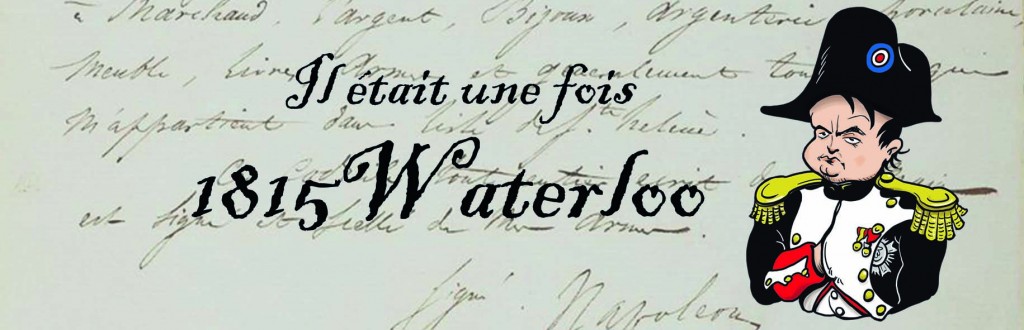 à Marchand, l'argent, Bijoux, argenterie porcelaine,
Il était une fois
meuble, livres, Armes et généralement tout que
m'appartient dans l'isle de Ste helène.
1815 Waterloo
écrit de main
est signé et scellé de mes Armes.
signé Napoleon